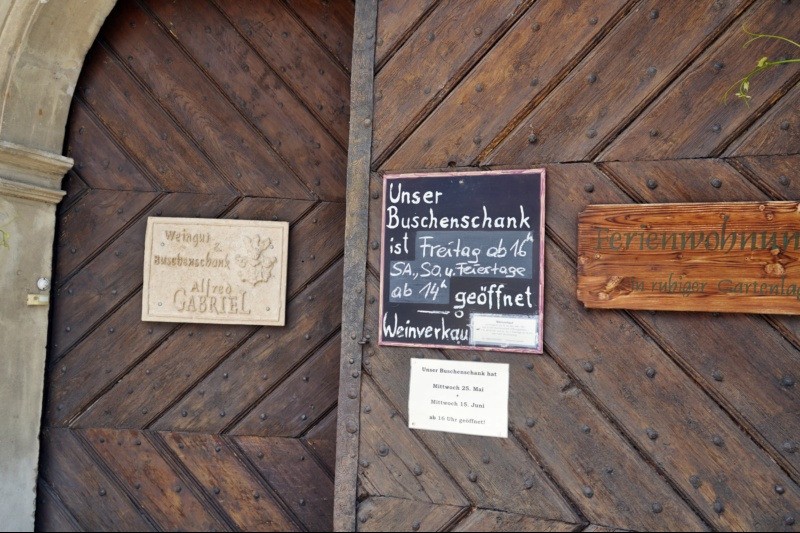 Weingut
&
Buschenschank
Alfred
GABRIEL
Unser
Buschenschank
ist Freitag ab 16h
SA., SO. u. Feiertage
ab 14h geöffnet
Weinverkau
Unser Buschenschank hat
Mittwoch 25. Mai
+
Mittwoch 15. Juni
ab 16 Uhr geöffnet!
Ferienwohnun
in ruhiger Gartenlag